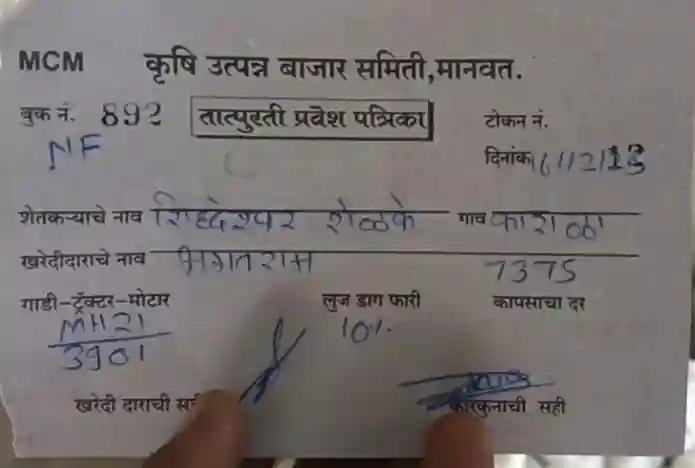 MCM कृषि उत्पन्न बाजार समिती,मानवत.
बुक नं. 892 तात्पुरती प्रवेश पत्रिका टोकन नं.
NF दिनांक
शेतकऱ्याचे नाव सिध्देश्वर शेळके गाव
खरेदीदाराचे नाव भगतराम 7375
गाडी-ट्रॅक्टर-मोटार लुज डाग फारी कापसाचा दर
MH21 10%
3901
खरेदी दाराची कारकुनाची सही